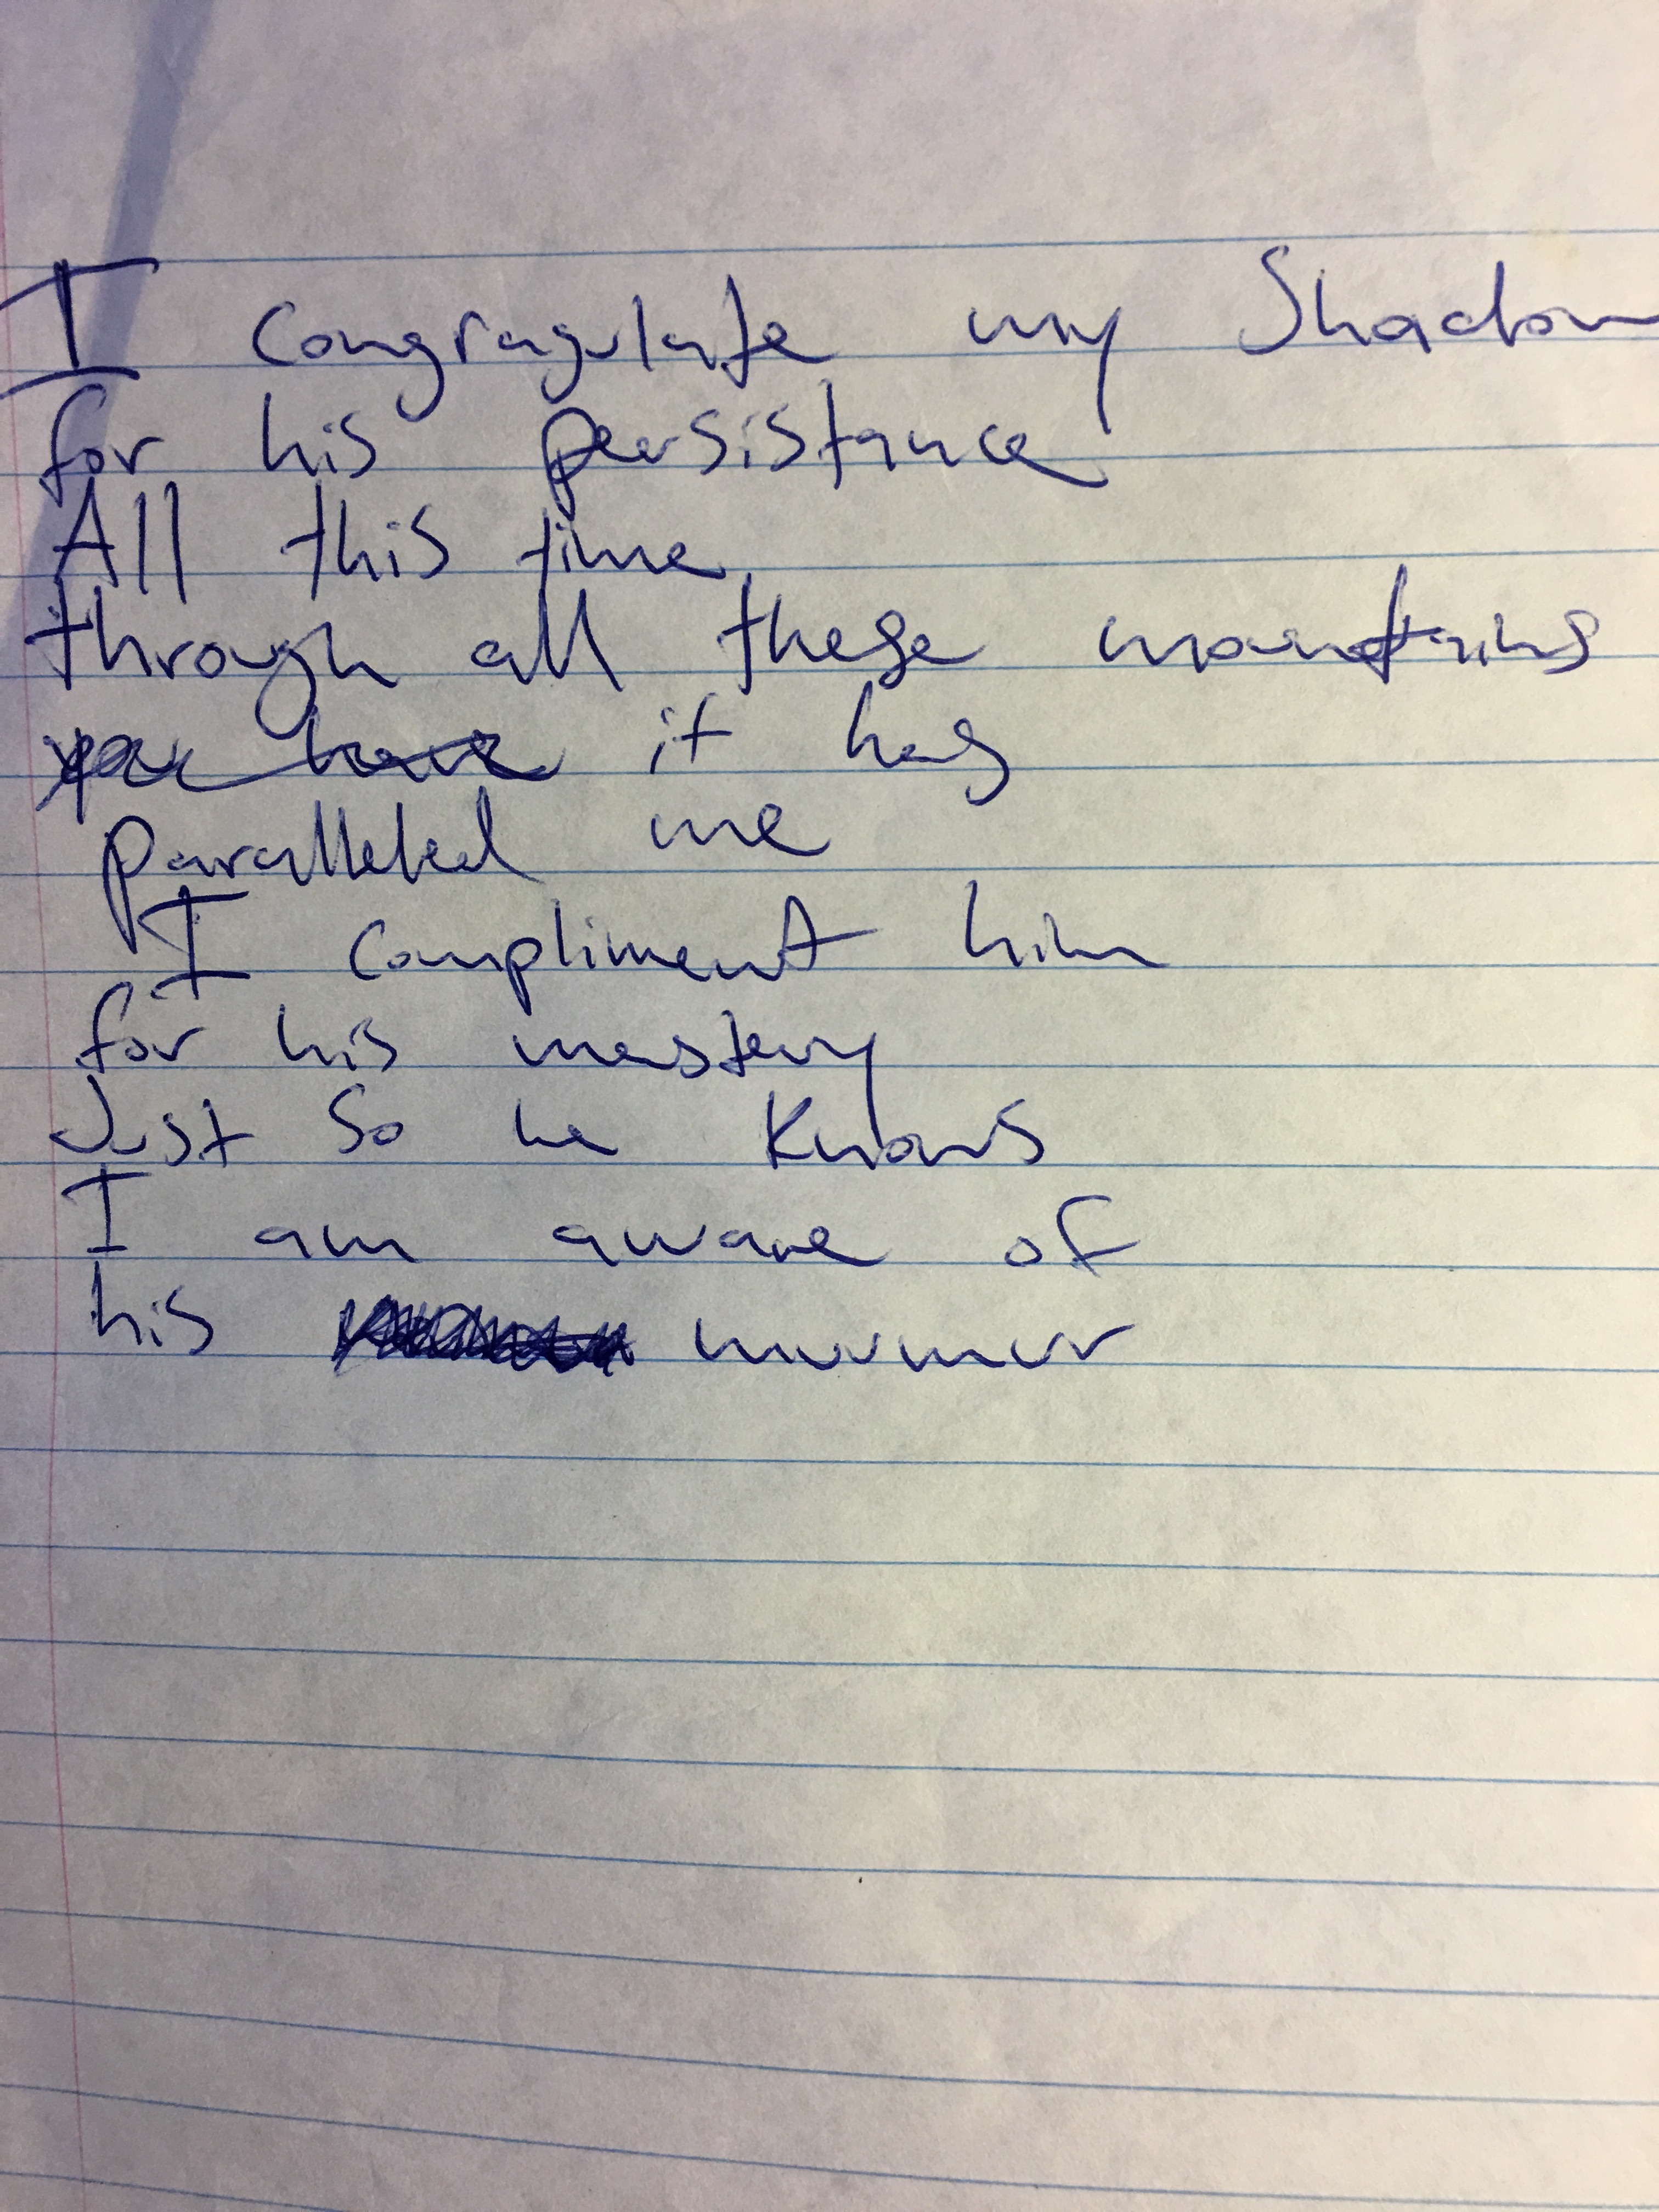 I congragulate my Shadow
for his persistance
All this time
through all these mountains
you have it has
paralleled me
I compliment him
for his mastery
Just So he Knows
I am aware of
his murmur